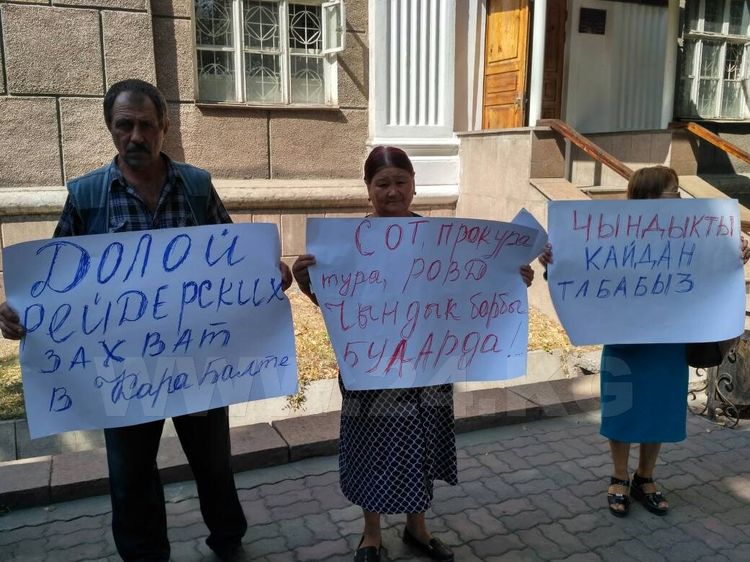 ДОЛОЙ
РЕЙДЕРСКИХ
ЗАХВАТ
В Кара Балте
СОТ, прокура
тура, РОВД
Чындык барбы
БУЛАРДА!
ЧЫНДЫКТЫ
КАЙДАН
ТАБАБЫЗ
www.24.kg